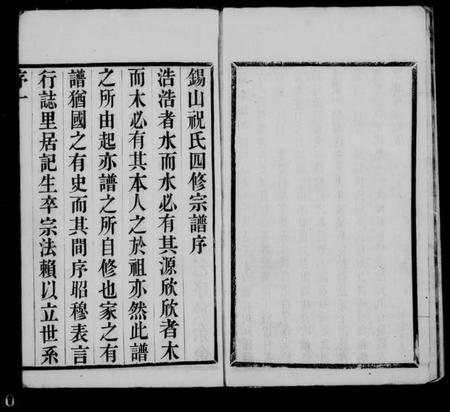 錫山祝氏四修宗譜序
浩浩者水而水必有其源欣欣者木
而木必有其本人之於祖亦然此譜
之所由起亦譜之所自修也家之有
譜猶國之有史而其間序昭穆表言
行誌里居記生卒宗法賴以立世系
序一
0